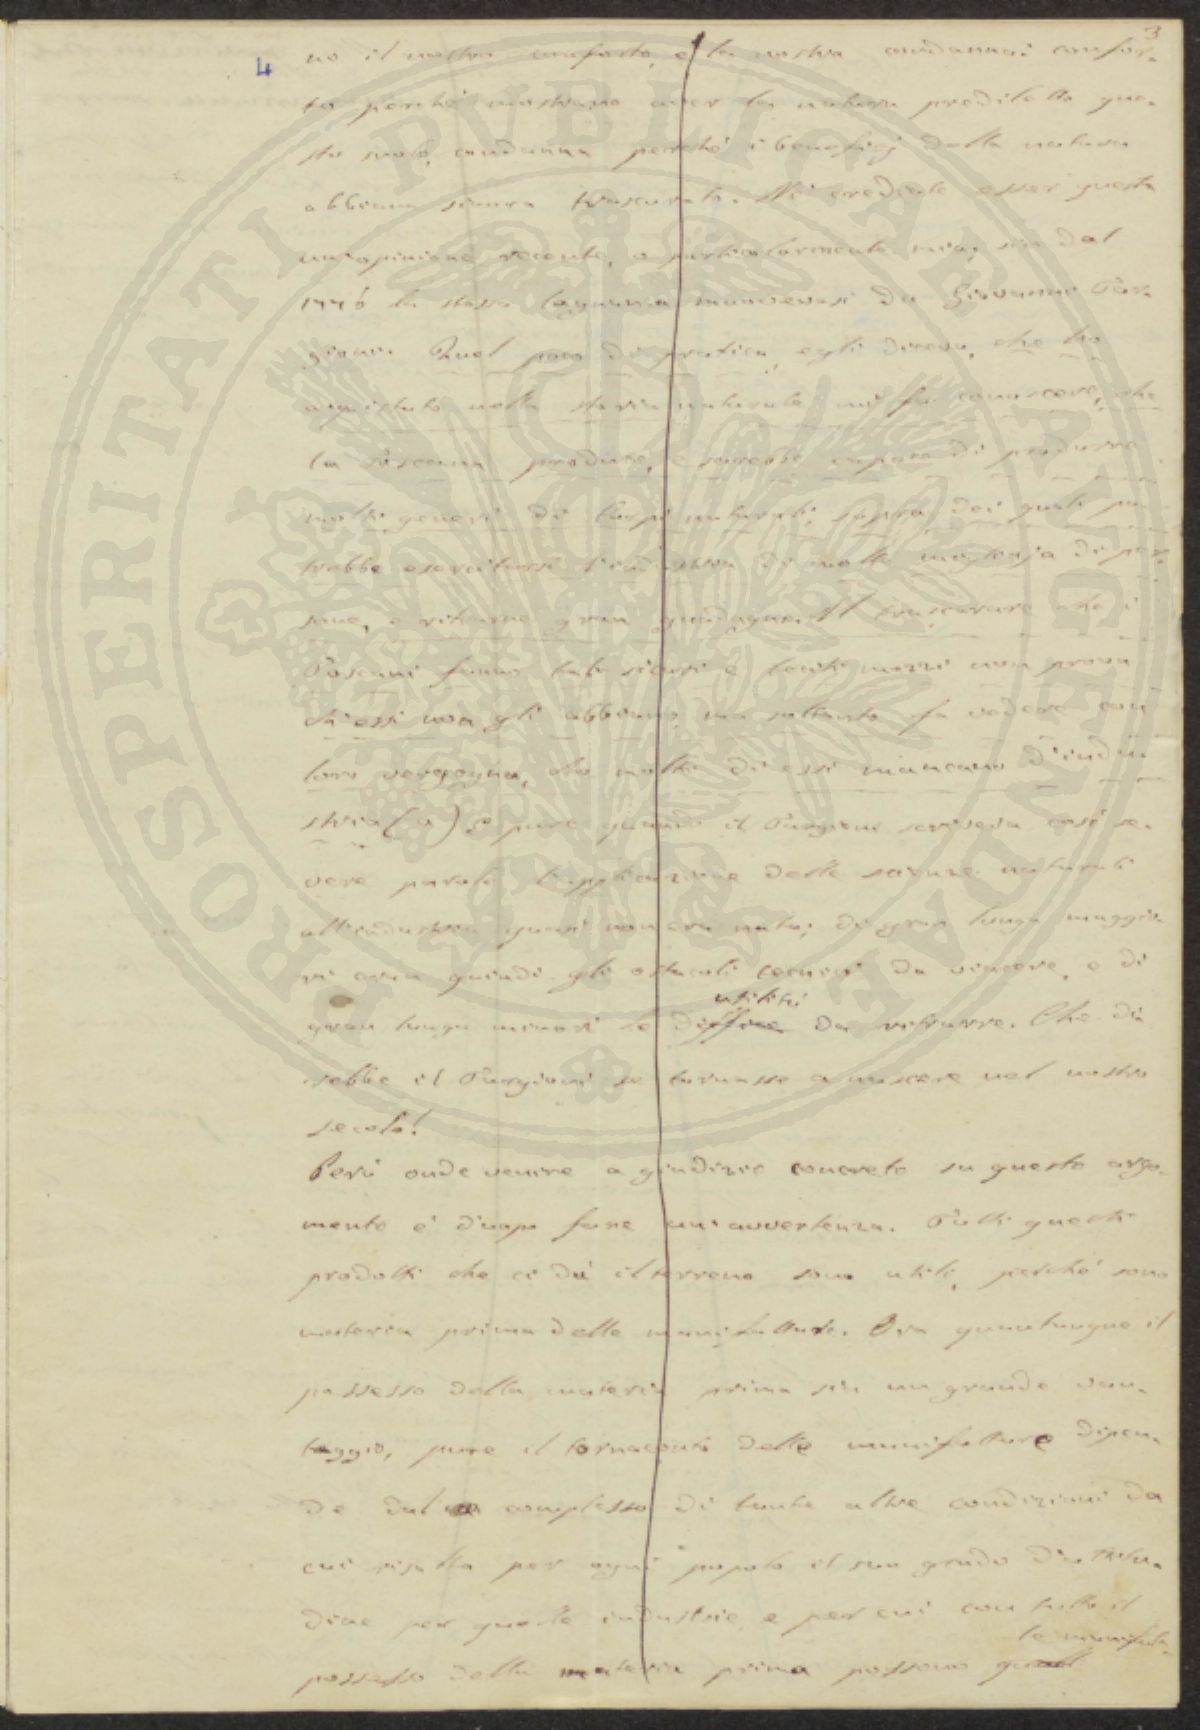 3
4
no il nostro conforto, e la nostra condanna: confor-
to perché mostrano aver la natura prediletto que-
sto suolo, condanna perché i benefizj della natura
abbiamo sinora trascurato. Né crediate esser questa
un'opinione recente, o particolarmente mia; sin dal
la stessa lagnanza muovevasi da Giovanni Tar-
gioni. Quel poco di pratica, egli diceva, che ho
acquistato nella storia naturale mi fa conoscere, che
la Toscana produce, e sarebbe capace di produrre
molti generi di Corpi naturali, sopra dei quali po-
trebbe esercitarsi l'industria di molte migliaja di per-
sone, e ritrarne gran guadagno. Il trascurare che i
Toscani fanno tali sicuri e tanti mezzi non prova
ch'essi non gli abbiano, ma soltanto fa vedere con
loro vergogna, che molti di essi mancano d'indu-
stria (a) E pure quando il Targioni scriveva così se-
vere parole l'applicazione delle scienze naturali
all'industria quasi non era nata; di gran lunga maggio-
ri eran quindi gli ostacoli tecnici da vincere, e di
utilità
gran lunga minori le da ritrarre. Che di-
rebbe il Targioni se tornasse a nascere nel nostro
secolo!
Però onde venire a giudizio concreto su questo argo-
mento è d'uopo fare un'avvertenza. Tutti questi
prodotti che ci dà il terreno sono utili, perché sono
materia prima delle manifatture. Ora quantunque il
possesso della materia prima sia un grande van-
taggio, pure il tornaconto delle manifatture dipen-
de dal complesso di tante altre condizioni da
cui risulta per ogni popolo il suo grado d'attitu-
dine per quelle industrie, e per cui con tutto il
le manifat-
possesso della materia prima possono
PROSPERITATI PVBLICAE AVGENDAE